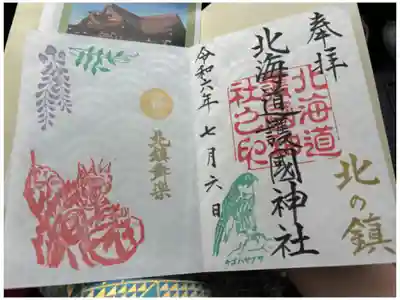 奉拝
北の鎮
北海道護國神社
北海道
社之印
チゴハヤブサ
令和六年七月六日